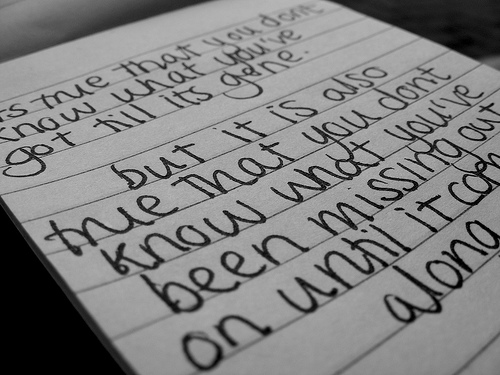 ts true that you dont
know what you've
got till its gone.
but it is also
true that you dont
know what you've
been missing out
on until it com
along